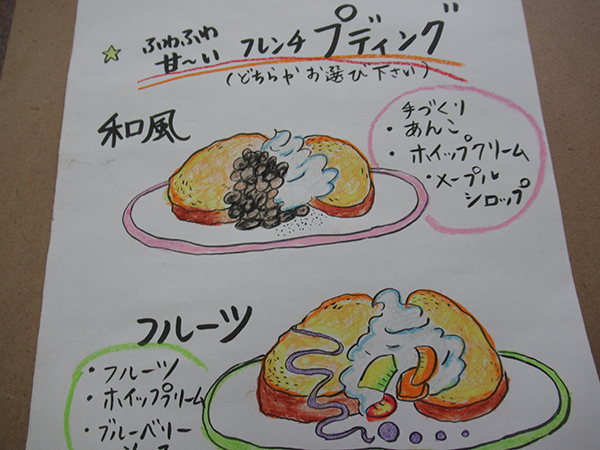 ☆ ふわふわ
甘〜い フレンチ プディング
(どちらかお選び下さい)
和風
手づくり
・あんこ
・ホイップクリーム
・メープル
シロップ
フルーツ
・フルーツ
・ホイップクリーム
・ブルーベリー